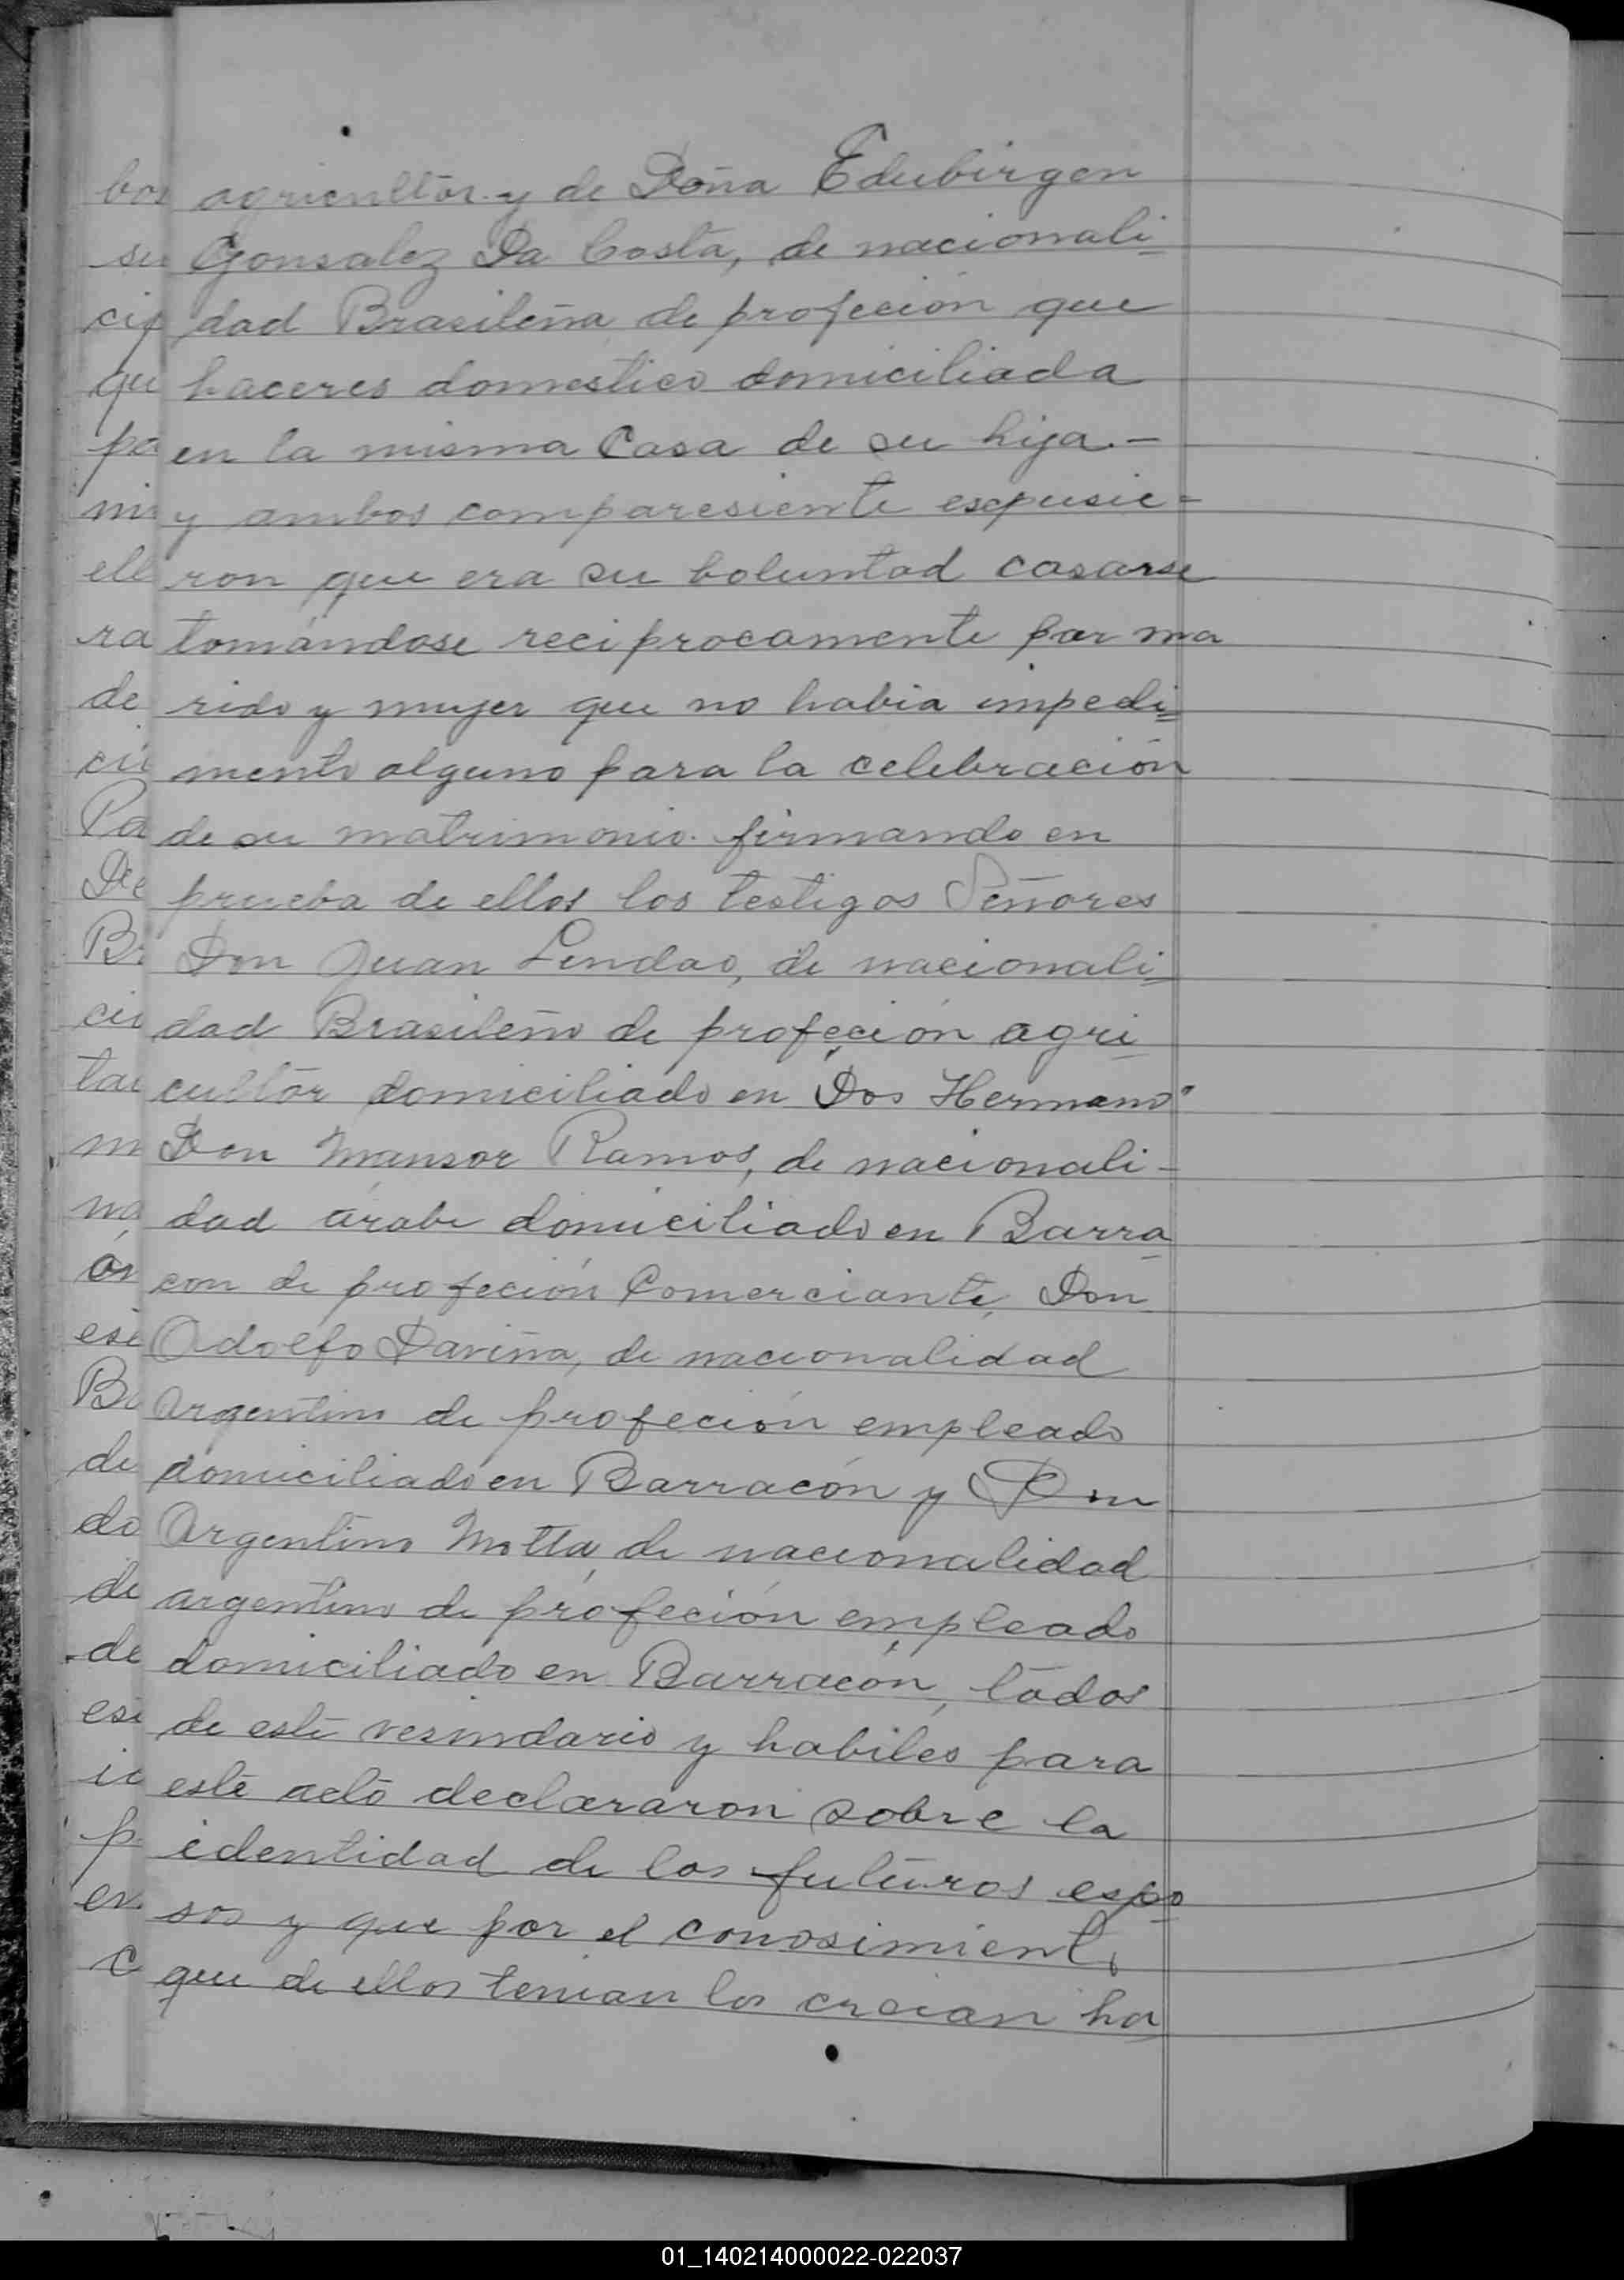 agricultor y de Doña Edubirgen
Gonsalez Da Costa, de nacionali-
dad Brasileña de profeción que
haceres domestico domiciliada
en la misma Casa de su hija.-
y ambos comparesiente expusie=
ron que era su boluntad casarse
tomándose reciprocamente por ma
rido y mujer que no habia impedi=
mento alguno para la celebración
de su matrimonio. firmando en
prueba de ellos los testigos Señores
Don Juan Lindao, de nacionali-
dad Brasileño de profeción agri
cultor domiciliado en Dos Hermanos
Don Mansor Ramos, de nacionali-
dad árabe domiciliado en Barra
con de profeción Comerciante, Don
Adolfo Daviña, de nacionalidad
Argentino de profeción empleado
domiciliado en Barracón y Don
Argentino Motta, de nacionalidad
argentino de profeción empleado
domiciliado en Barracón, todos
de este vesindario y habiles para
este acto declararon sobre la
identidad de los futuros espo
sos y que por el conosimiento
que de ellos tenian los creian ha
bos
su
cip
qu
pa
mi
ell
ra
de
ciu
Pa
De
Br
ciu
tar
m
na
ón
esi
Ba
de
do
de
de
esi
ie
p
en
c
01_140214000022-022037